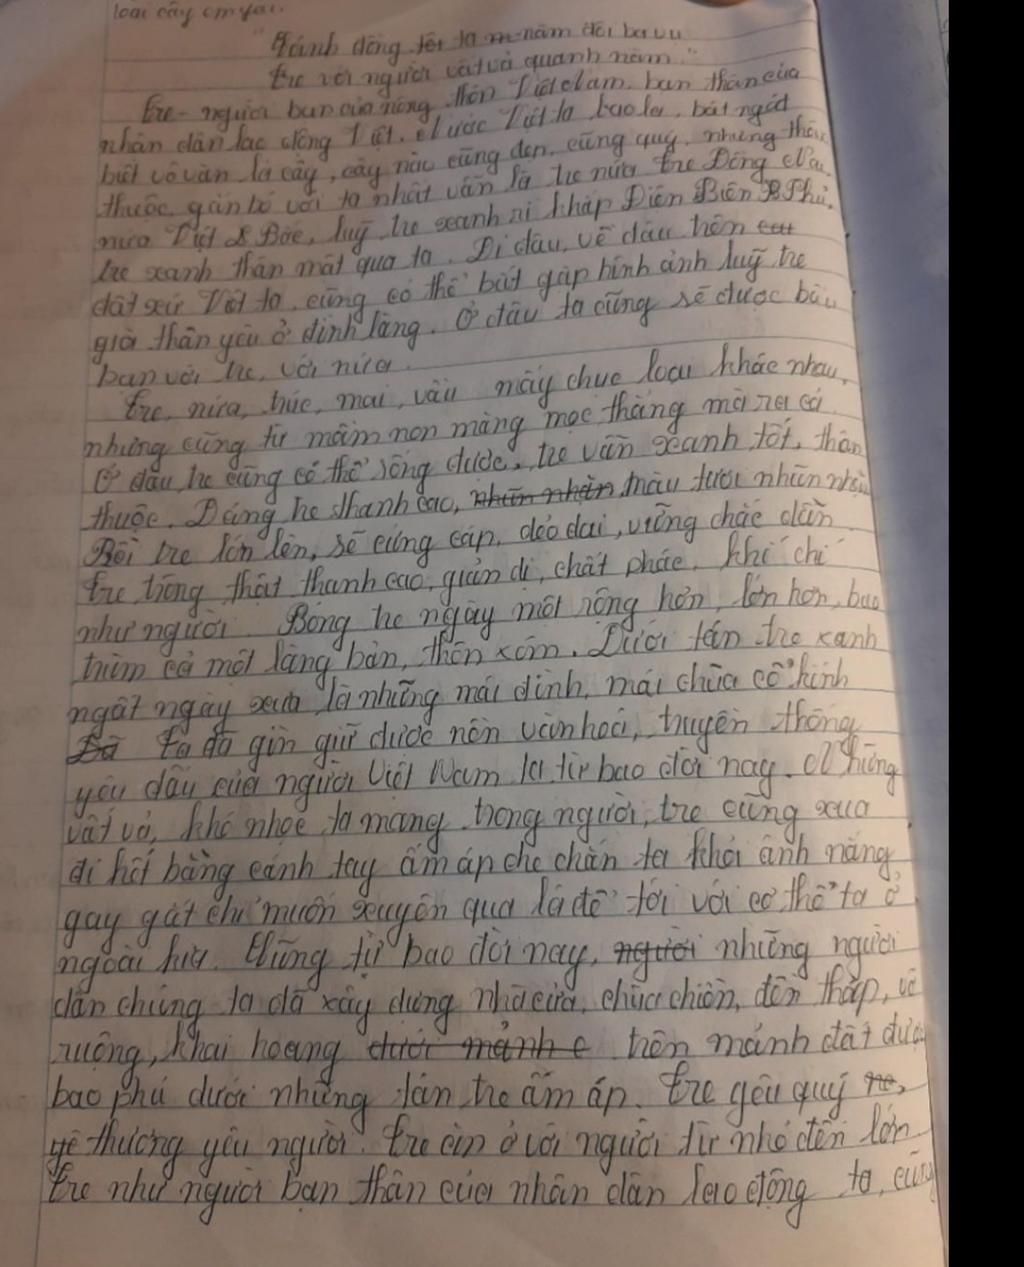 loài cây em yêu.
"Cánh đồng tết ta m năm đôi ba vụ
Tre với người vất vả quanh năm."
Tre - người bạn của nông thôn Việt Nam, bạn thân của
nhân dân lao động Việt. Nước Việt ta bao la, bát ngát
biết vô vàn lá cây, cây nào cũng đẹp, cũng quý, nhưng thân
thuộc, gắn bó với ta nhất vẫn là tre nứa Tre Đồng Nai,
nứa Việt Bắc, luỹ tre xanh rì khắp Điện Biên Phủ,
tre xanh thân mật qua ta. Đi đâu, về đâu trên
đất xứ Việt ta, cũng có thể bắt gặp hình ảnh luỹ tre
già thân yêu ở đình làng. Ở đâu ta cũng sẽ được bầu
bạn với tre, với nứa.
Tre, nứa, trúc, mai, vầu mấy chục loại khác nhau,
nhưng cũng từ mầm non măng mọc thẳng mà ra cả
Ở đâu, tre cũng có thể sống được, tre vẫn xanh tốt, thân
thuộc. Dáng tre thanh cao, nhũn nhặn màu tươi nhũn nhặn
Rồi tre lớn lên, sẽ cứng cáp, dẻo dai, vững chắc dần
Tre trông thật thanh cao, giản dị, chất phác, khí chí
như người. Bóng tre ngày một rộng hơn, lớn hơn, bao
trùm cả một làng bản, thôn xóm. Dưới tán tre xanh
ngắt ngày xưa là những mái đình, mái chùa cổ kính
Đã Ta đã gìn giữ được nền văn hoá, truyền thống
yêu dấu của người Việt Nam ta từ bao đời nay. Những
vất vả, khó nhọc ta mang trong người, tre cũng xua
đi hết bằng cánh tay ấm áp che chắn ta khỏi ánh nắng
gay gắt chỉ muốn xuyên qua lá để tới với cơ thể ta ở
ngoài kia. Cũng từ bao đời nay, người những người
dân chúng ta đã xây dựng nhà cửa, chùa chiền, đền tháp, vỡ
ruộng, khai hoang dưới mảnh c trên mảnh đất được
bao phủ dưới những tán tre ấm áp. Tre yêu quý tre,
thương yêu người. Tre còn ở với người từ nhỏ đến lớn
Tre như người bạn thân của nhân dân lao động ta, cũng